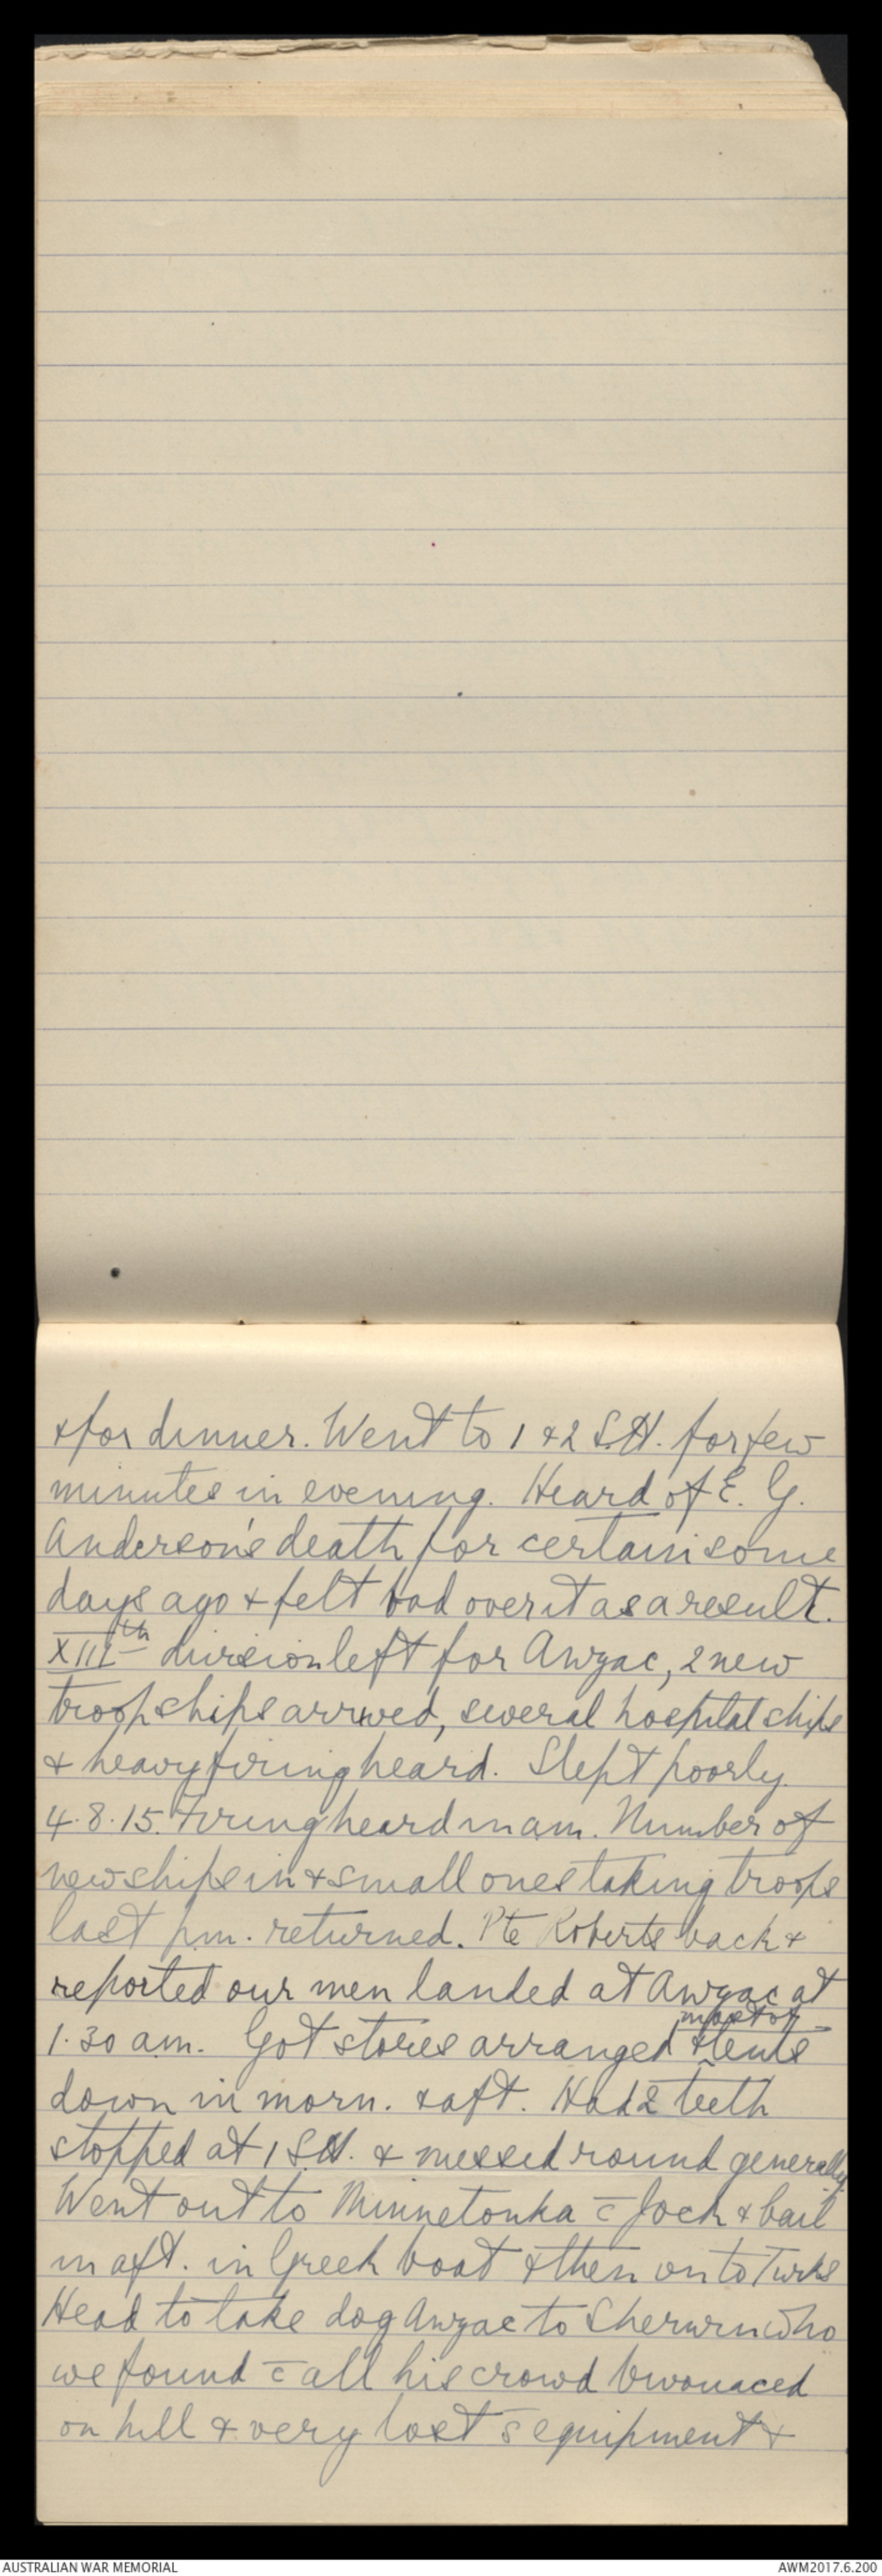 & for dinner. Went to 1 & 2 S.H. for few
minutes in evening. Heard of E. G.
Anderson's death for certain some
days ago & felt bad over it as a result.
XIIIth division left for Anzac, 2 new
troopships arrived, several hospital ships
& heavy firing heard. Slept poorly.
4.8.15. Firing heard in am. Number of
new ships in & small ones taking troops
last p.m. returned. Pte Roberts back &
reported our men landed at Anzac at
most of
1.30 am. Got stores arranged & tents
down in morn. & aft. Had 2 teeth
stopped at 1 S.H. & messed round generally
Went out to Minnetonka c̄ Jock & Cail
in aft. in Greek boat & then on to Turks
Head to take dog Anzac to Sherwin who
we found c̄ all his crowd bivouaced
on hill & very lost s̄ equipment &
AUSTRALIAN WAR MEMORIAL
AWM2017.6.200